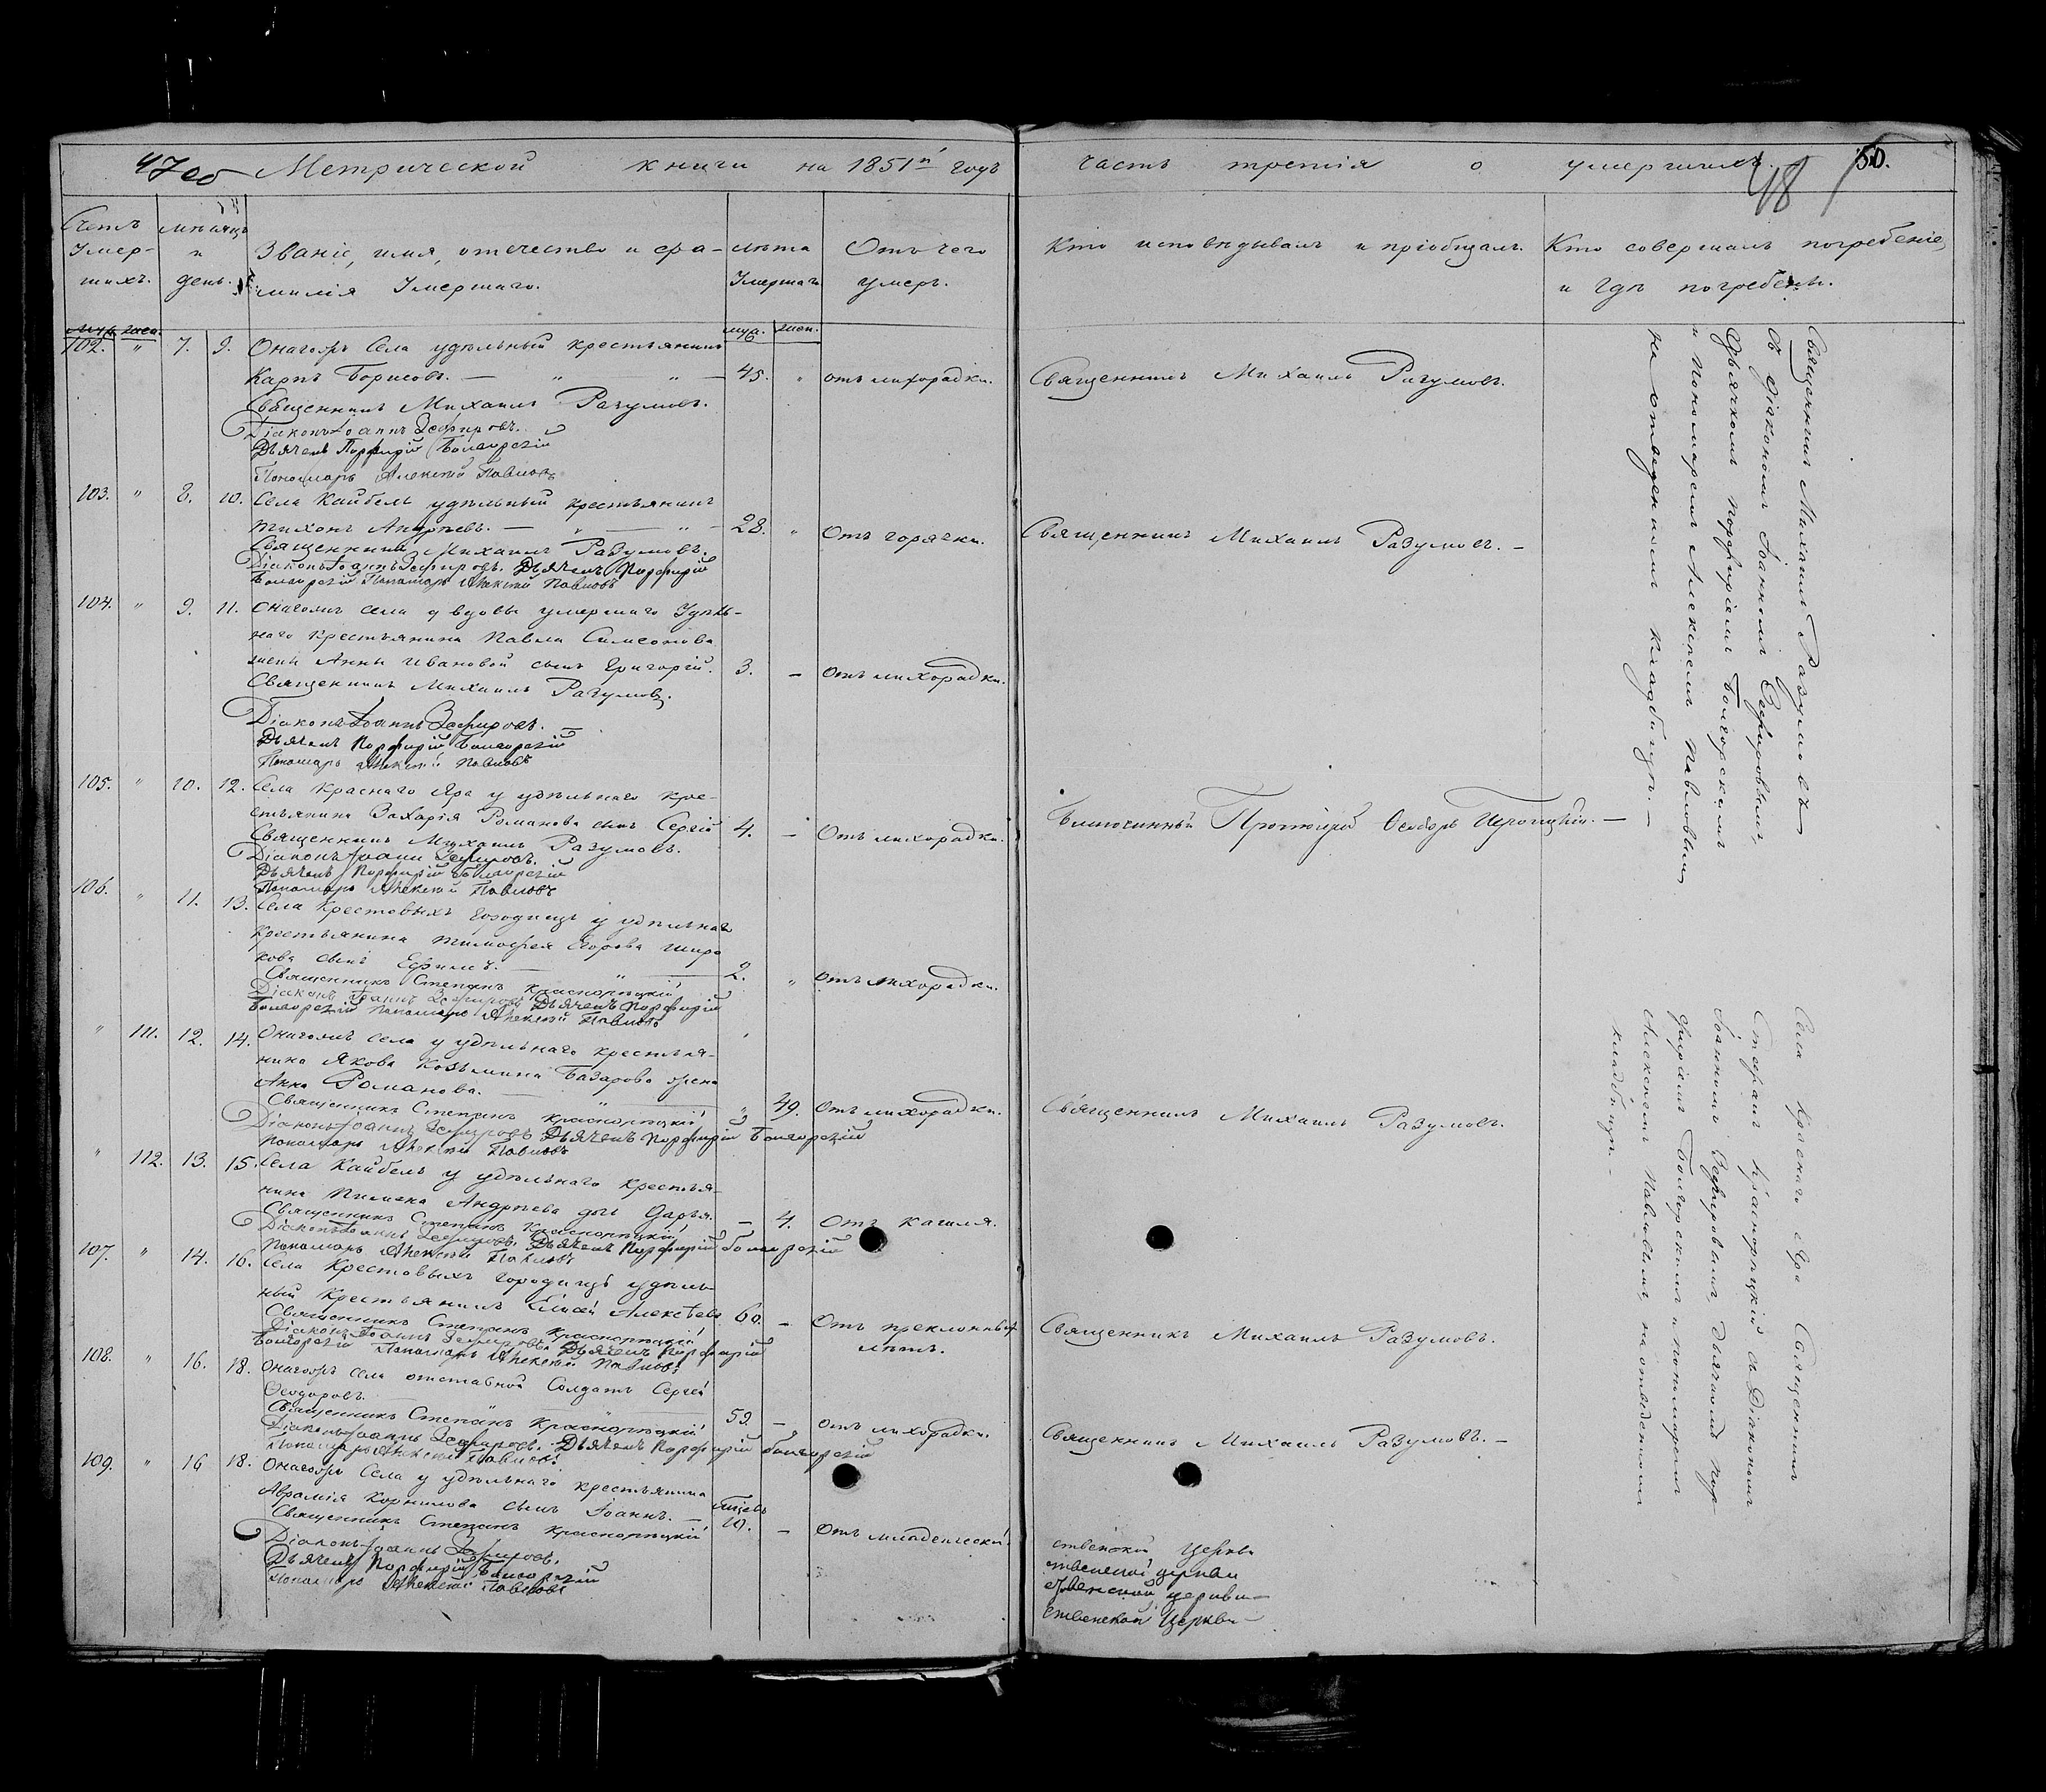 47об Метрической книги на 1851й годъ часть третія о умершихъ. 48 50.
Счетъ Умер- шихъ.
мѣсяцъ и день.
Званіе, имя, отечество и фа- милія Умершаго.
лѣта Умершаго
Отъ чего умеръ.
Кто исповѣдывалъ и пріобщалъ.
Кто совершалъ погребеніе, и гдѣ погребены.
муж. жен. муж. жен.
102. " 7. 9. Онагожъ Села удѣльный крестьянинъ
Карпъ Борисовъ. — " " — 45. " отъ лихорадки. Священникъ Михаилъ Разумовъ.
Священникъ Михаилъ Разумовъ.
Діаконъ Іоаннъ Зефировъ.
Дьячекъ Порфирій Болгорскій
Пономарь Алексѣй Павловъ
103. " 8. 10. Села Кайбелъ удѣльный крестьянинъ
Тихонъ Андреевъ. — " — " — 28. " Отъ горячки. Священникъ Михаилъ Разумовъ. —
Священникъ Михаилъ Разумовъ.
Діаконъ Іоаннъ Зефировъ. Дьячекъ Порфирій
Болгорскій Пономарь Алексѣй Павловъ
104. " 9. 11. Онагожъ села у вдовы умершаго Удѣль-
наго крестьянина Павла Симеонова
жены Анны Ивановой сынъ Григорій. 3. — Отъ лихорадки.
Священникъ Михаилъ Разумовъ.
Діаконъ Іоаннъ Зефировъ. —
Дьячекъ Порфирій Болгорскій
Пономарь Алексѣй Павловъ
105. " 10. 12. Села Краснаго Яра у удѣльнаго кре-
стьянина Захарія Романова сынъ Сергій 4. — Отъ лихорадки. Благочинный Протоіерей Ѳеодоръ —
Священникъ Михаилъ Разумовъ.
Діаконъ Іоаннъ Зефировъ.
Дьячекъ Порфирій Болгорскій
Пономарь Алексѣй Павловъ
106. " 11. 13. Села Крестовыхъ Городищъ у удѣльнаго
крестьянина Тимоѳея Егорова Широ
кова сынъ Ефимъ. — " — 2. " отъ лихорадки.
Священникъ Степанъ Красноряцкій
Діаконъ Іоаннъ Зефировъ Дьячекъ Порфирій
Болгорскій Пономарь Алексѣй Павловъ
" 111. 12. 14. Онагожъ села у удѣльнаго крестья-
нина Якова Козьмина Базарова жена
Анна Романова. — " " 49. Отъ лихорадки. Священникъ Михаилъ Разумовъ.
Священникъ Степанъ Красноряцкій
Діаконъ Іоаннъ Зефировъ Дьячекъ Порфирій Болгорскій
Пономарь Алексѣй Павловъ
" 112. 13. 15. Села Кайбелъ у удѣльнаго крестья-
нина Пимена Андреева дочь Дарья. — 4. Отъ кашля.
Священникъ Степанъ Красноряцкій
Діаконъ Іоаннъ Зефировъ. Дьячекъ Порфирій Болгорскій
Пономарь Алексѣй Павловъ
107. " 14. 16. Села Крестовыхъ Городищъ удѣль-
ный крестьянинъ Елисей Алексѣевъ 60. — Отъ преклонныхъ лѣтъ. Священникъ Михаилъ Разумовъ.
Священникъ Степанъ Красноряцкій
Діаконъ Іоаннъ Зефировъ Дьячекъ Порфирій
Болгорскій Пономарь Алексѣй Павловъ
108. " 16. 18. Онагожъ села отставной Солдатъ Сергей
Ѳеодоровъ. — 59. — отъ лихорадки. Священникъ Михаилъ Разумовъ. —
Священникъ Степанъ Красноряцкій
Діаконъ Іоаннъ Зефировъ. Дьячекъ Порфирій Болгорскій
Пономарь Алексѣй Павловъ
109. " 16 18. Онагожъ Села у удѣльнаго крестьянина
Аврамія Корнилова сынъ Іоаннъ. — 10. — Отъ младенческой
Священникъ Степанъ Красноряцкій
Діаконъ Іоаннъ Зефировъ.
Дьячекъ Порфирій Болгорскій
Пономарь Алексѣй Павловъ
ственской Церкви
ственской церкви
ственской церкви —
ственской Церкви —
Священникъ Михаилъ Разумовъ
съ Діакономъ Іоанномъ Зефировымъ,
дьячкомъ Порфиріемъ Болгорскимъ
и Пономаремъ Алексѣемъ Павловымъ
на отведенномъ кладбищѣ. —
Села Краснаго Яра Священникъ
Степанъ Красноряцкій съ Діакономъ
Іоанномъ Зефировымъ, дьячкомъ Пор-
фиріемъ Болгорскимъ и пономаремъ
Алексѣемъ Павловымъ, на отведенномъ
кладбищѣ. —